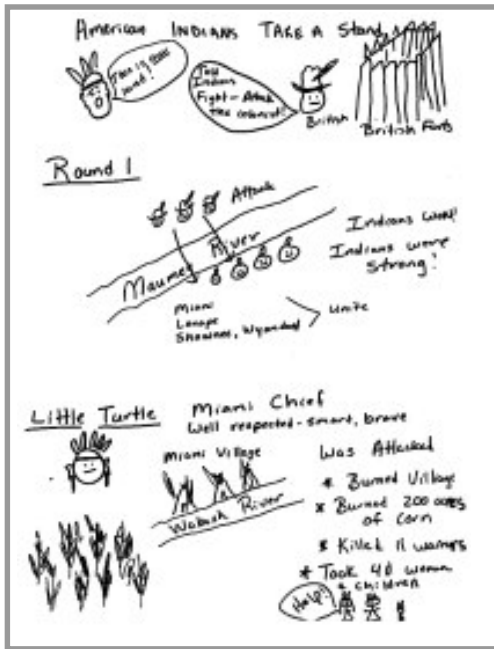 American Indians Take a Stand
This is our land!
Indians
Fight - Attack
the colonist!
British
British Forts
Round 1
Attack
Maumee River
Indians Won!
Indians were
strong!
Miami
Lenape
Shawnee, Wyandot
Unite
Little Turtle
Miami Chief
Well respected - smart, brave
Miami Village
Wabash River
Was Attacked
* Burned Village
* Burned 200 acres
of corn
* Killed 11 warriors
* Took 40 women
+ children
Help!